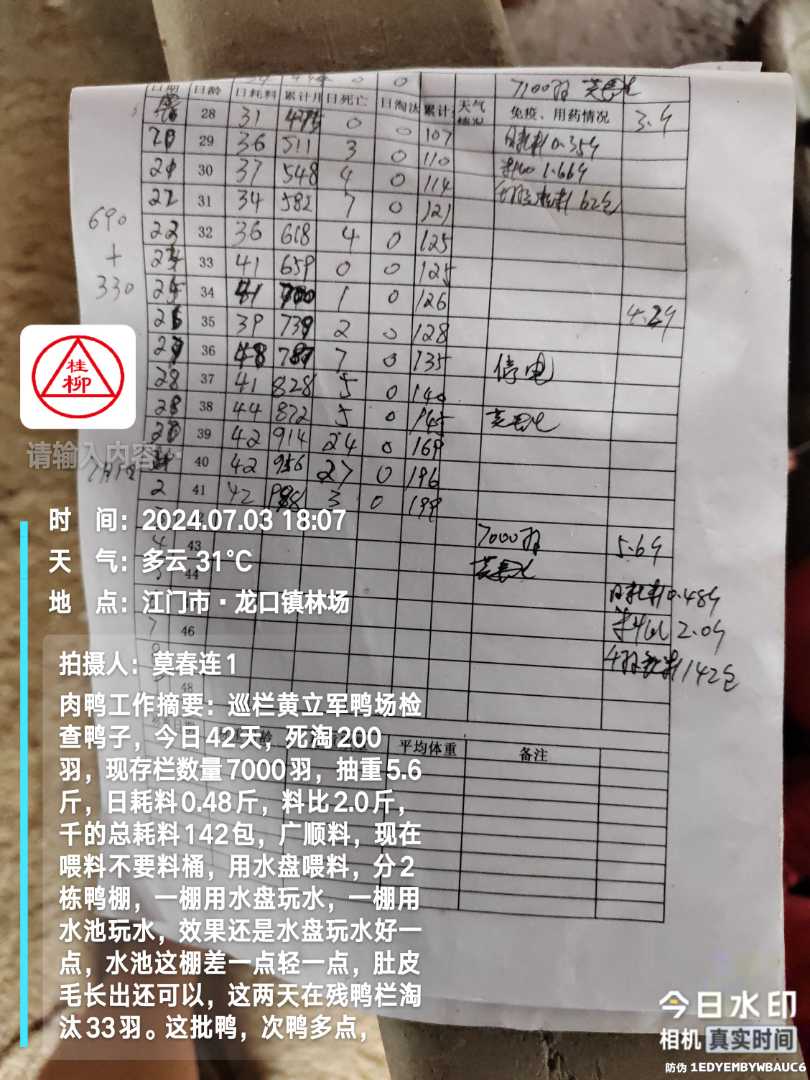 7100羽 莫春连
日期 日龄 日耗料 累计用 日死亡 日淘汰 累计 天气情况 免疫、用药情况 3.4
28 31 475 0 0
20 29 36 511 3 0 107 日耗料0.35斤
21 30 37 548 4 0 110 料比1.66斤
21 31 34 582 7 0 114 62包
22 32 36 618 4 0 121
33 41 659 0 0 125
25 34 41 700 1 0 125
26 35 39 739 2 0 126 4.2斤
27 36 48 787 7 0 128
28 37 41 828 5 0 135 停电
28 38 44 872 5 0 140
39 42 914 24 0 145 莫春连
40 42 956 27 0 169
2 41 42 998 3 0 196
199
690
+
330
桂柳
请输入内容
7000羽 5.6斤
4 43 莫春连
44 日耗料0.48斤
7 46 料比2.0斤
48 142包
平均体重 备注
时 间：2024.07.03 18:07
天 气：多云 31°C
地 点：江门市·龙口镇林场
拍摄人：莫春连1
肉鸭工作摘要：巡栏黄立军鸭场检
查鸭子，今日42天，死淘200
羽，现存栏数量7000羽，抽重5.6
斤，日耗料0.48斤，料比2.0斤，
千的总耗料142包，广顺料，现在
喂料不要料桶，用水盘喂料，分2
栋鸭棚，一棚用水盘玩水，一棚用
水池玩水，效果还是水盘玩水好一
点，水池这棚差一点轻一点，肚皮
毛长出还可以，这两天在残鸭栏淘
汰33羽。这批鸭，次鸭多点，
今日水印
相机 真实时间
防伪 1EDYEMBYWBAUC6